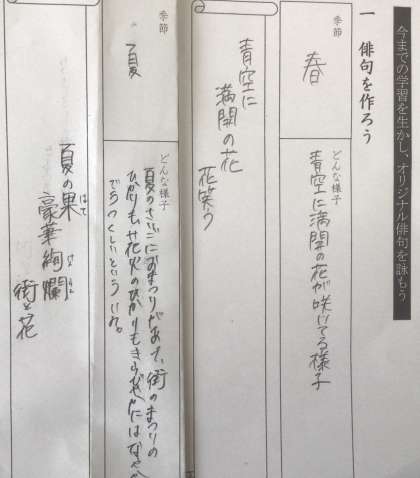 今までの学習を生かし、オリジナル俳句を詠もう
一 俳句を作ろう
季節
春
どんな様子
青空に満開の花が咲いてる様子
青空に
満開の花
花笑う
季節
夏
どんな様子
夏のさいごにおまつりがあって、街のまつりの
ひかりも花火のひかりも
うつくしいという
夏の果
はて
豪華絢爛
けんらん
街と花